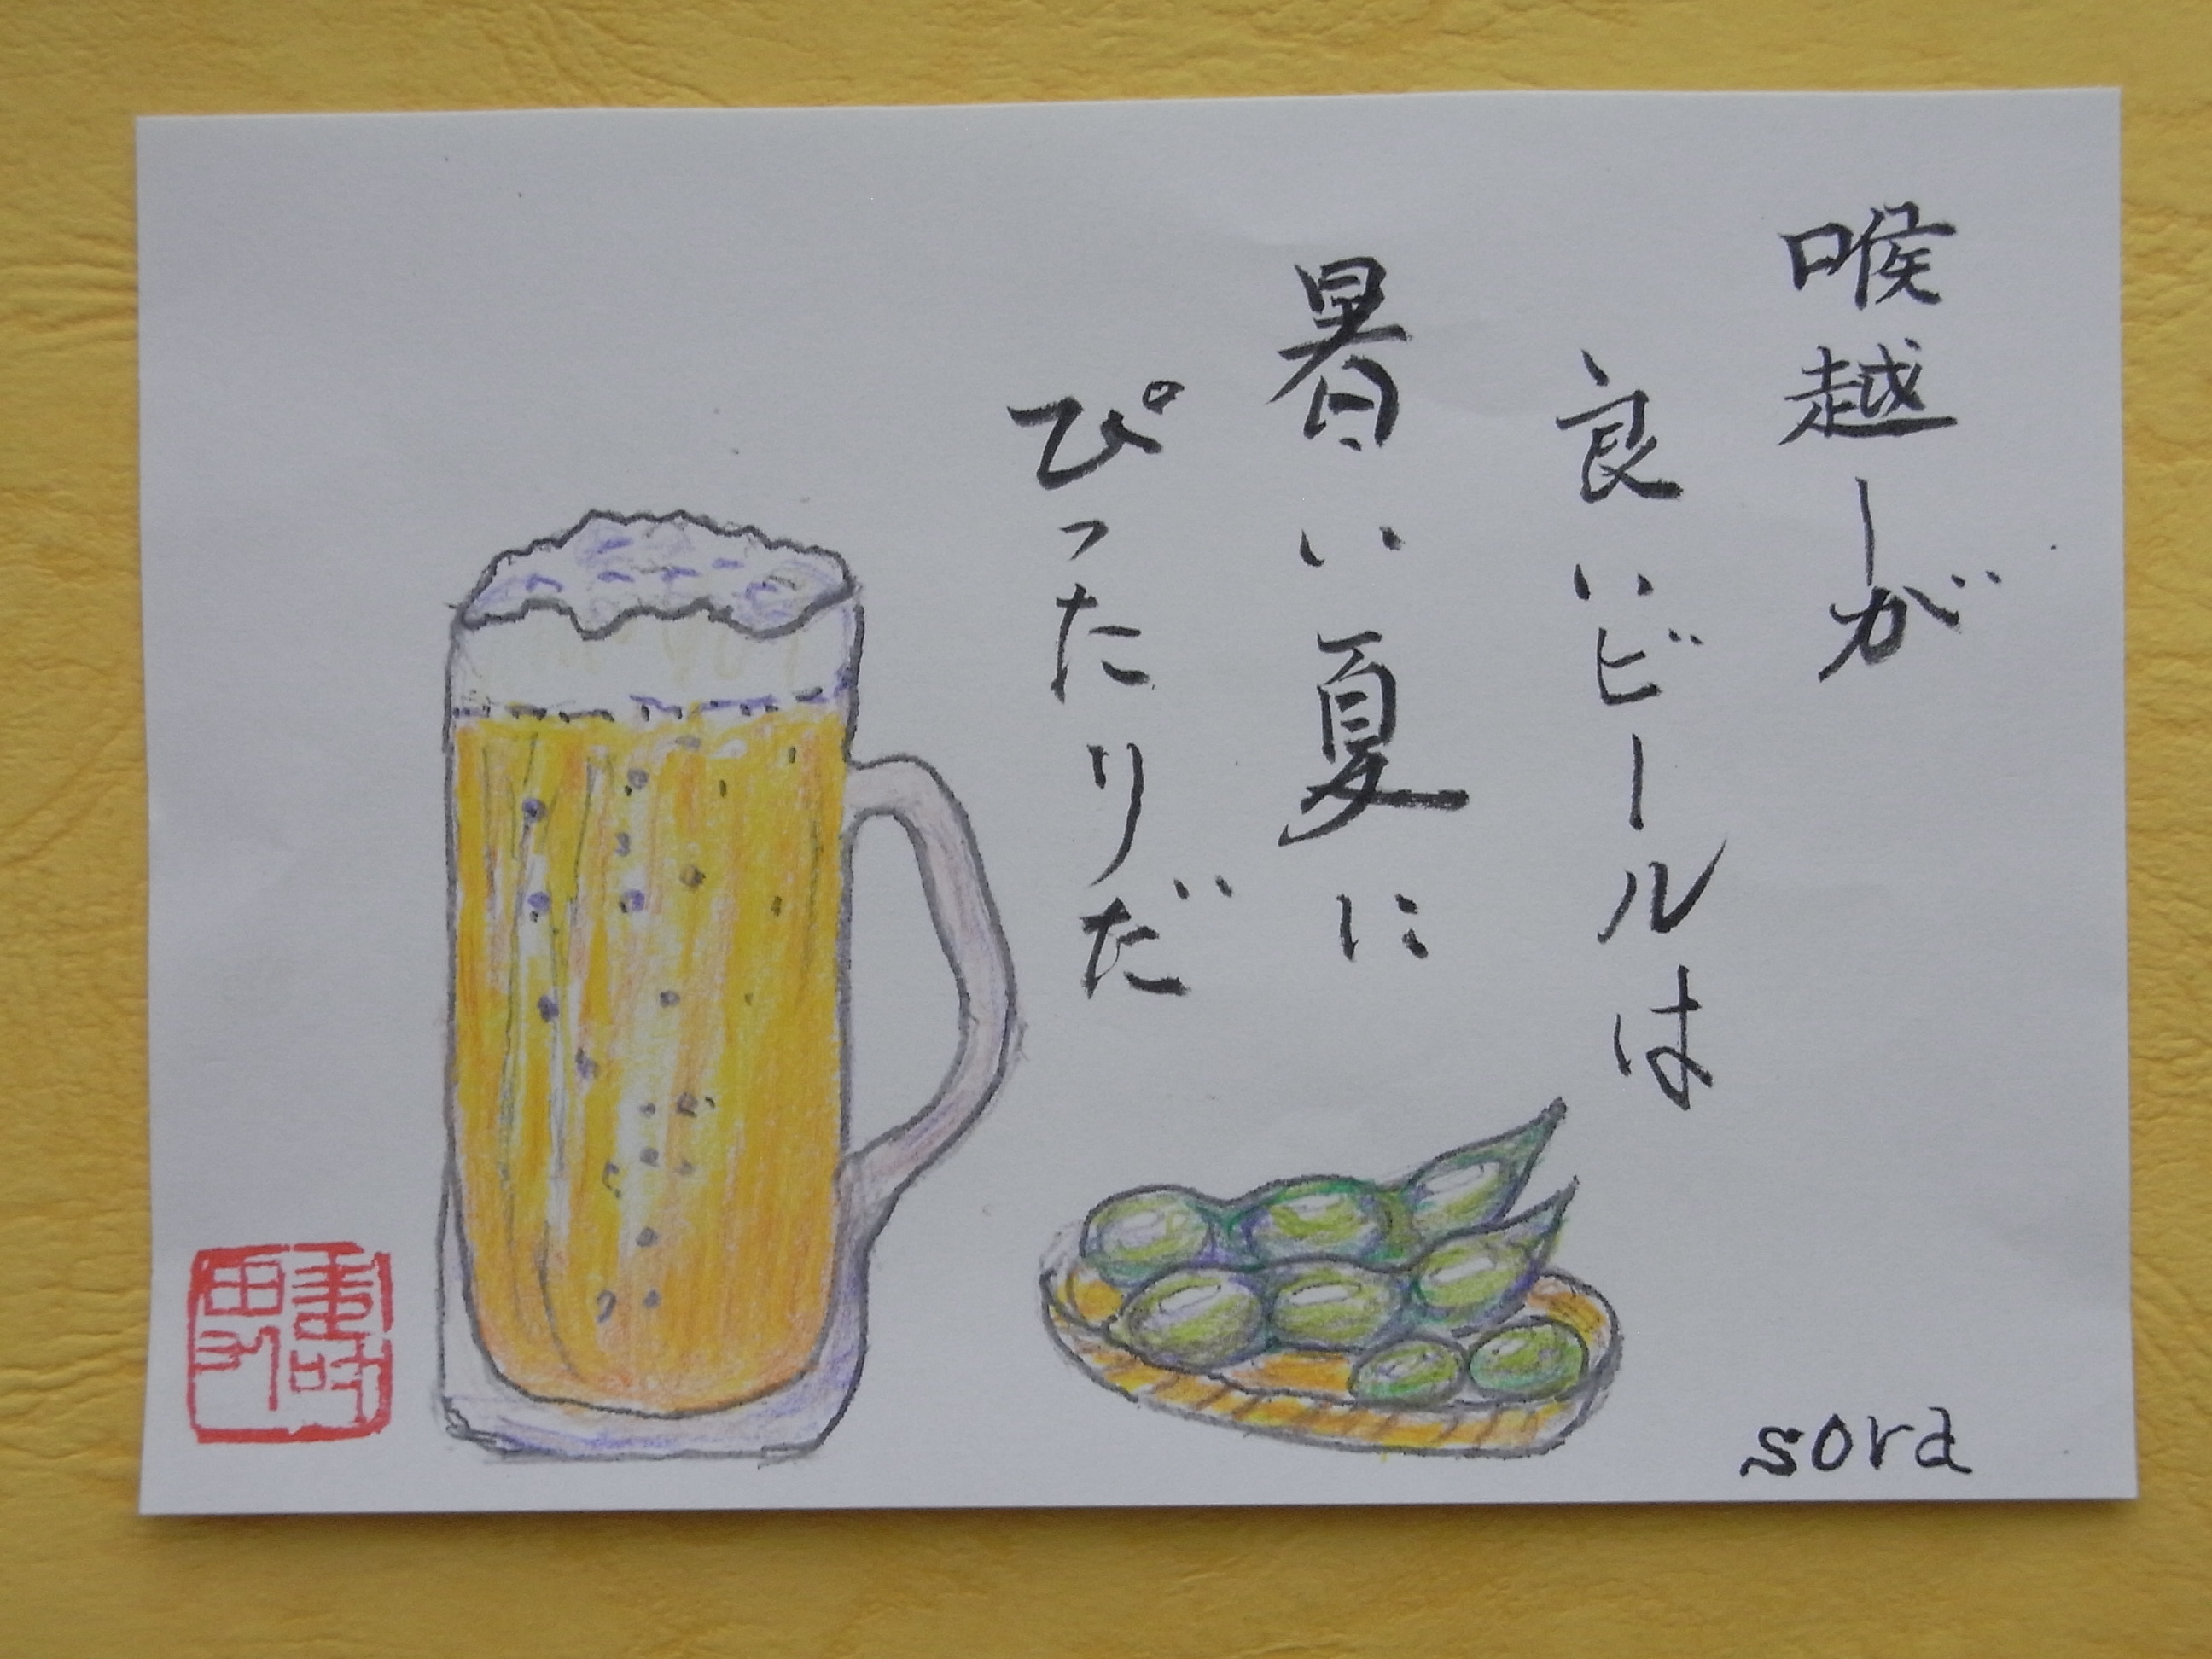 喉越しが
良いビールは
暑い夏に
ぴったりだ
sora